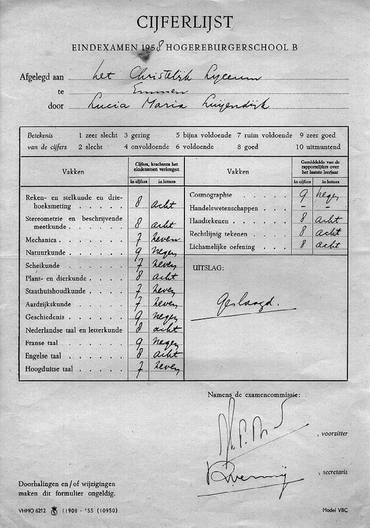 CIJFERLIJST
EINDEXAMEN 1958 HOGEREBURGERSCHOOL B
Afgelegd aan het Christelijk Lyceum
te Emmen
door Lucia Maria Luijendijk
Betekenis 1 zeer slecht 3 gering 5 bijna voldoende 7 ruim voldoende 9 zeer goed
van de cijfers 2 slecht 4 onvoldoende 6 voldoende 8 goed 10 uitmuntend
Vakken
Cijfers, krachtens het eindexamen verkregen
in cijfers in letters
Reken- en stelkunde en driehoeksmeting 8 acht
Stereometrie en beschrijvende meetkunde 8 acht
Mechanica 7 zeven
Natuurkunde 9 negen
Scheikunde 7 zeven
Plant- en dierkunde 8 acht
Staatshuishoudkunde 7 zeven
Aardrijkskunde 7 zeven
Geschiedenis 9 negen
Nederlandse taal en letterkunde 8 acht
Franse taal 9 negen
Engelse taal 8 acht
Hoogduitse taal 7 zeven
Vakken
Gemiddelde van de rapportcijfers over het laatste leerjaar
in cijfers in letters
Cosmographie 9 negen
Handelswetenschappen - -
Handtekenen 8 acht
Rechtlijnig tekenen 8 acht
Lichamelijke oefening 8 acht
UITSLAG:
Geslaagd.
Namens de examencommissie:
, voorzitter
, secretaris
Doorhalingen en/of wijzigingen
maken dit formulier ongeldig.
VHMO 6212 (1908 - '55 (10950)
Model VBC